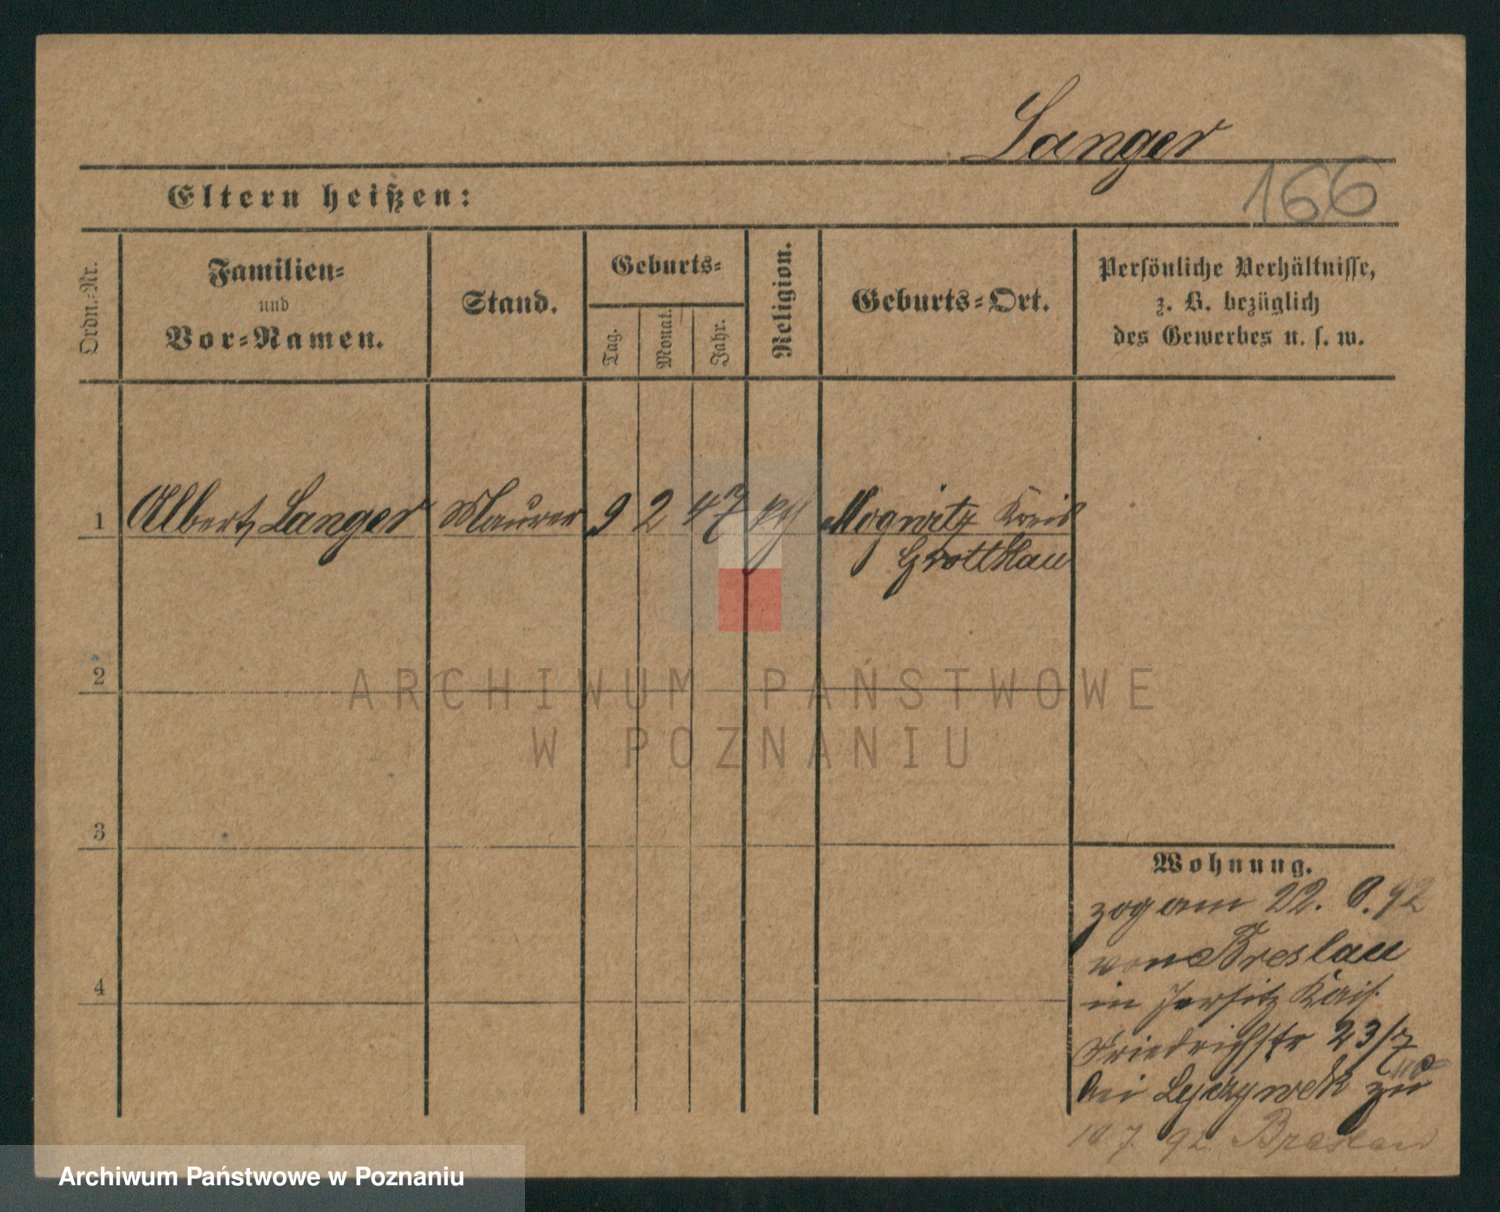 Langer
166
Eltern heißen:
Ordn.-Nr.
Familien-
und
Vor-Namen.
Stand.
Geburts-
Tag.
Monat.
Jahr.
Religion.
Geburts-Ort.
Persönliche Verhältnisse,
z. B. bezüglich
des Gewerbes u. s. w.
1 Albert Langer Maurer 9 2 47 Mogwitz Kreis
Grottkau
2
3
4
Wohnung.
zog am 22. 92
von Breslau
in Jersitz Kais.
Friedrichstr 23/7
bei zu
92 Breslau
ARCHIWUM PAŃSTWOWE
W POZNANIU
Archiwum Państwowe w Poznaniu